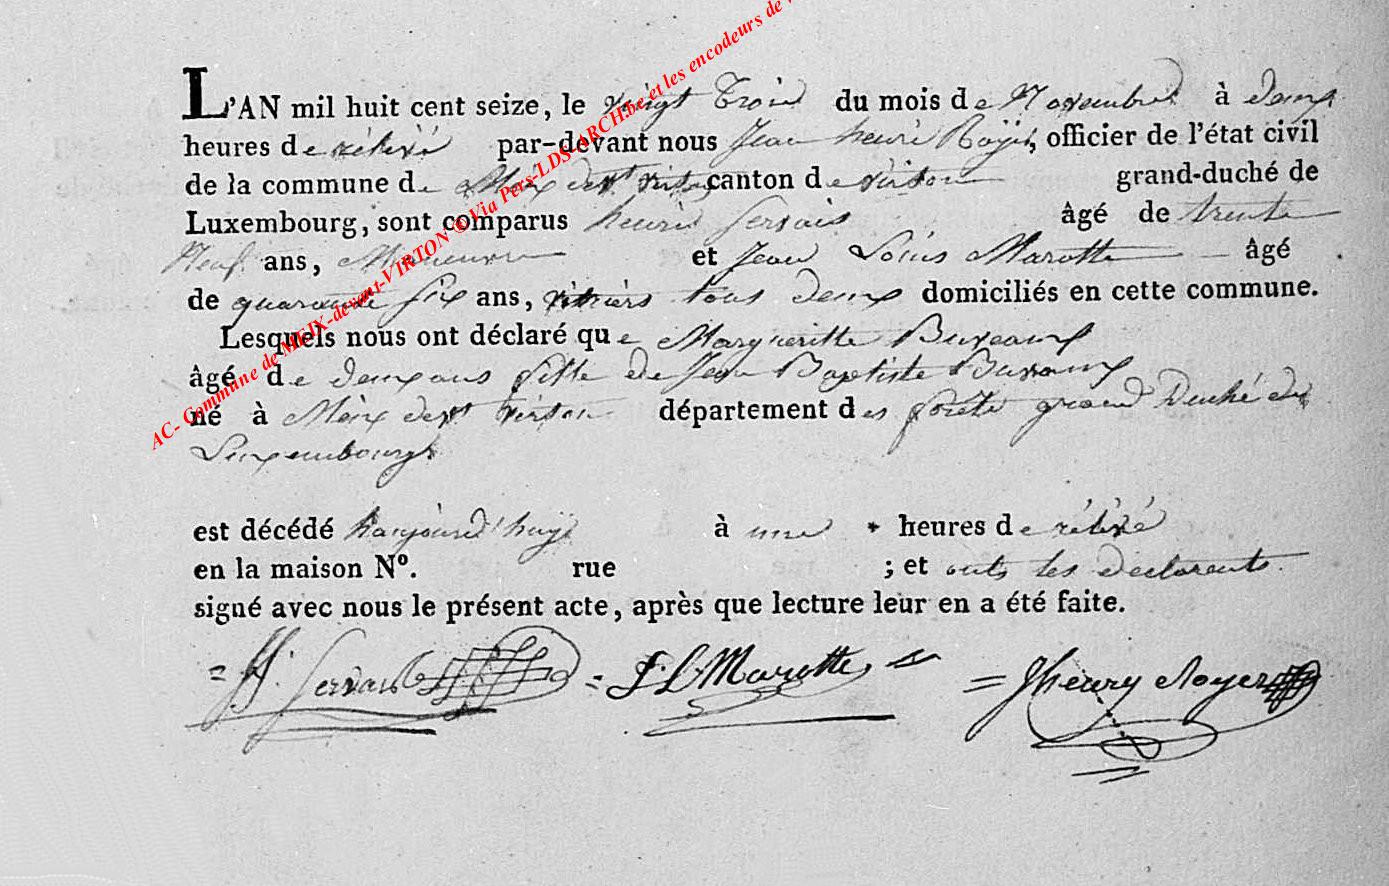 L'AN mil huit cent seize, le vingt Trois du mois de Novembre à deux
heures de rélevé par-devant nous Jean henri Royer, officier de l'état civil
de la commune de Meix devt virton canton de virton grand-duché de
Luxembourg, sont comparus henri Servais âgé de trente
Neuf ans, et Jean Louis Marotte âgé
de quarante six ans, tous deux domiciliés en cette commune.
Lesquels nous ont déclaré que Margueritte Bureaux
âgé de deux ans fille de Jean Baptiste Bureaux
né à Meix devt virton département des forêts grand Duché de
Luxembourg
est décédé aujourd'huy à une heures de rélevé
en la maison N°. rue ; et onts les déclarents
signé avec nous le présent acte, après que lecture leur en a été faite.
= H. Servais = J. L Marotte = Jhenry Royer
AC- Commune de MEIX-devant-VIRTON © Via Pers-LDS-ARCH.be et les encodeurs de